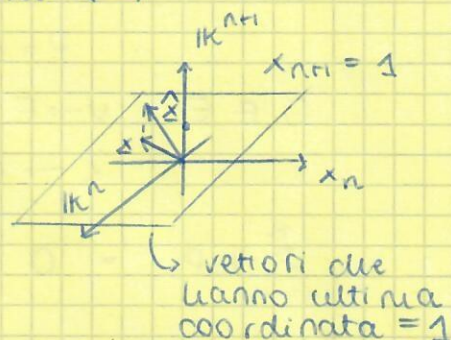 𝕂ⁿ⁺¹
xₙ₊₁ = 1
x̂
x
xₙ
𝕂ⁿ
vettori che
hanno ultima
coordinata = 1